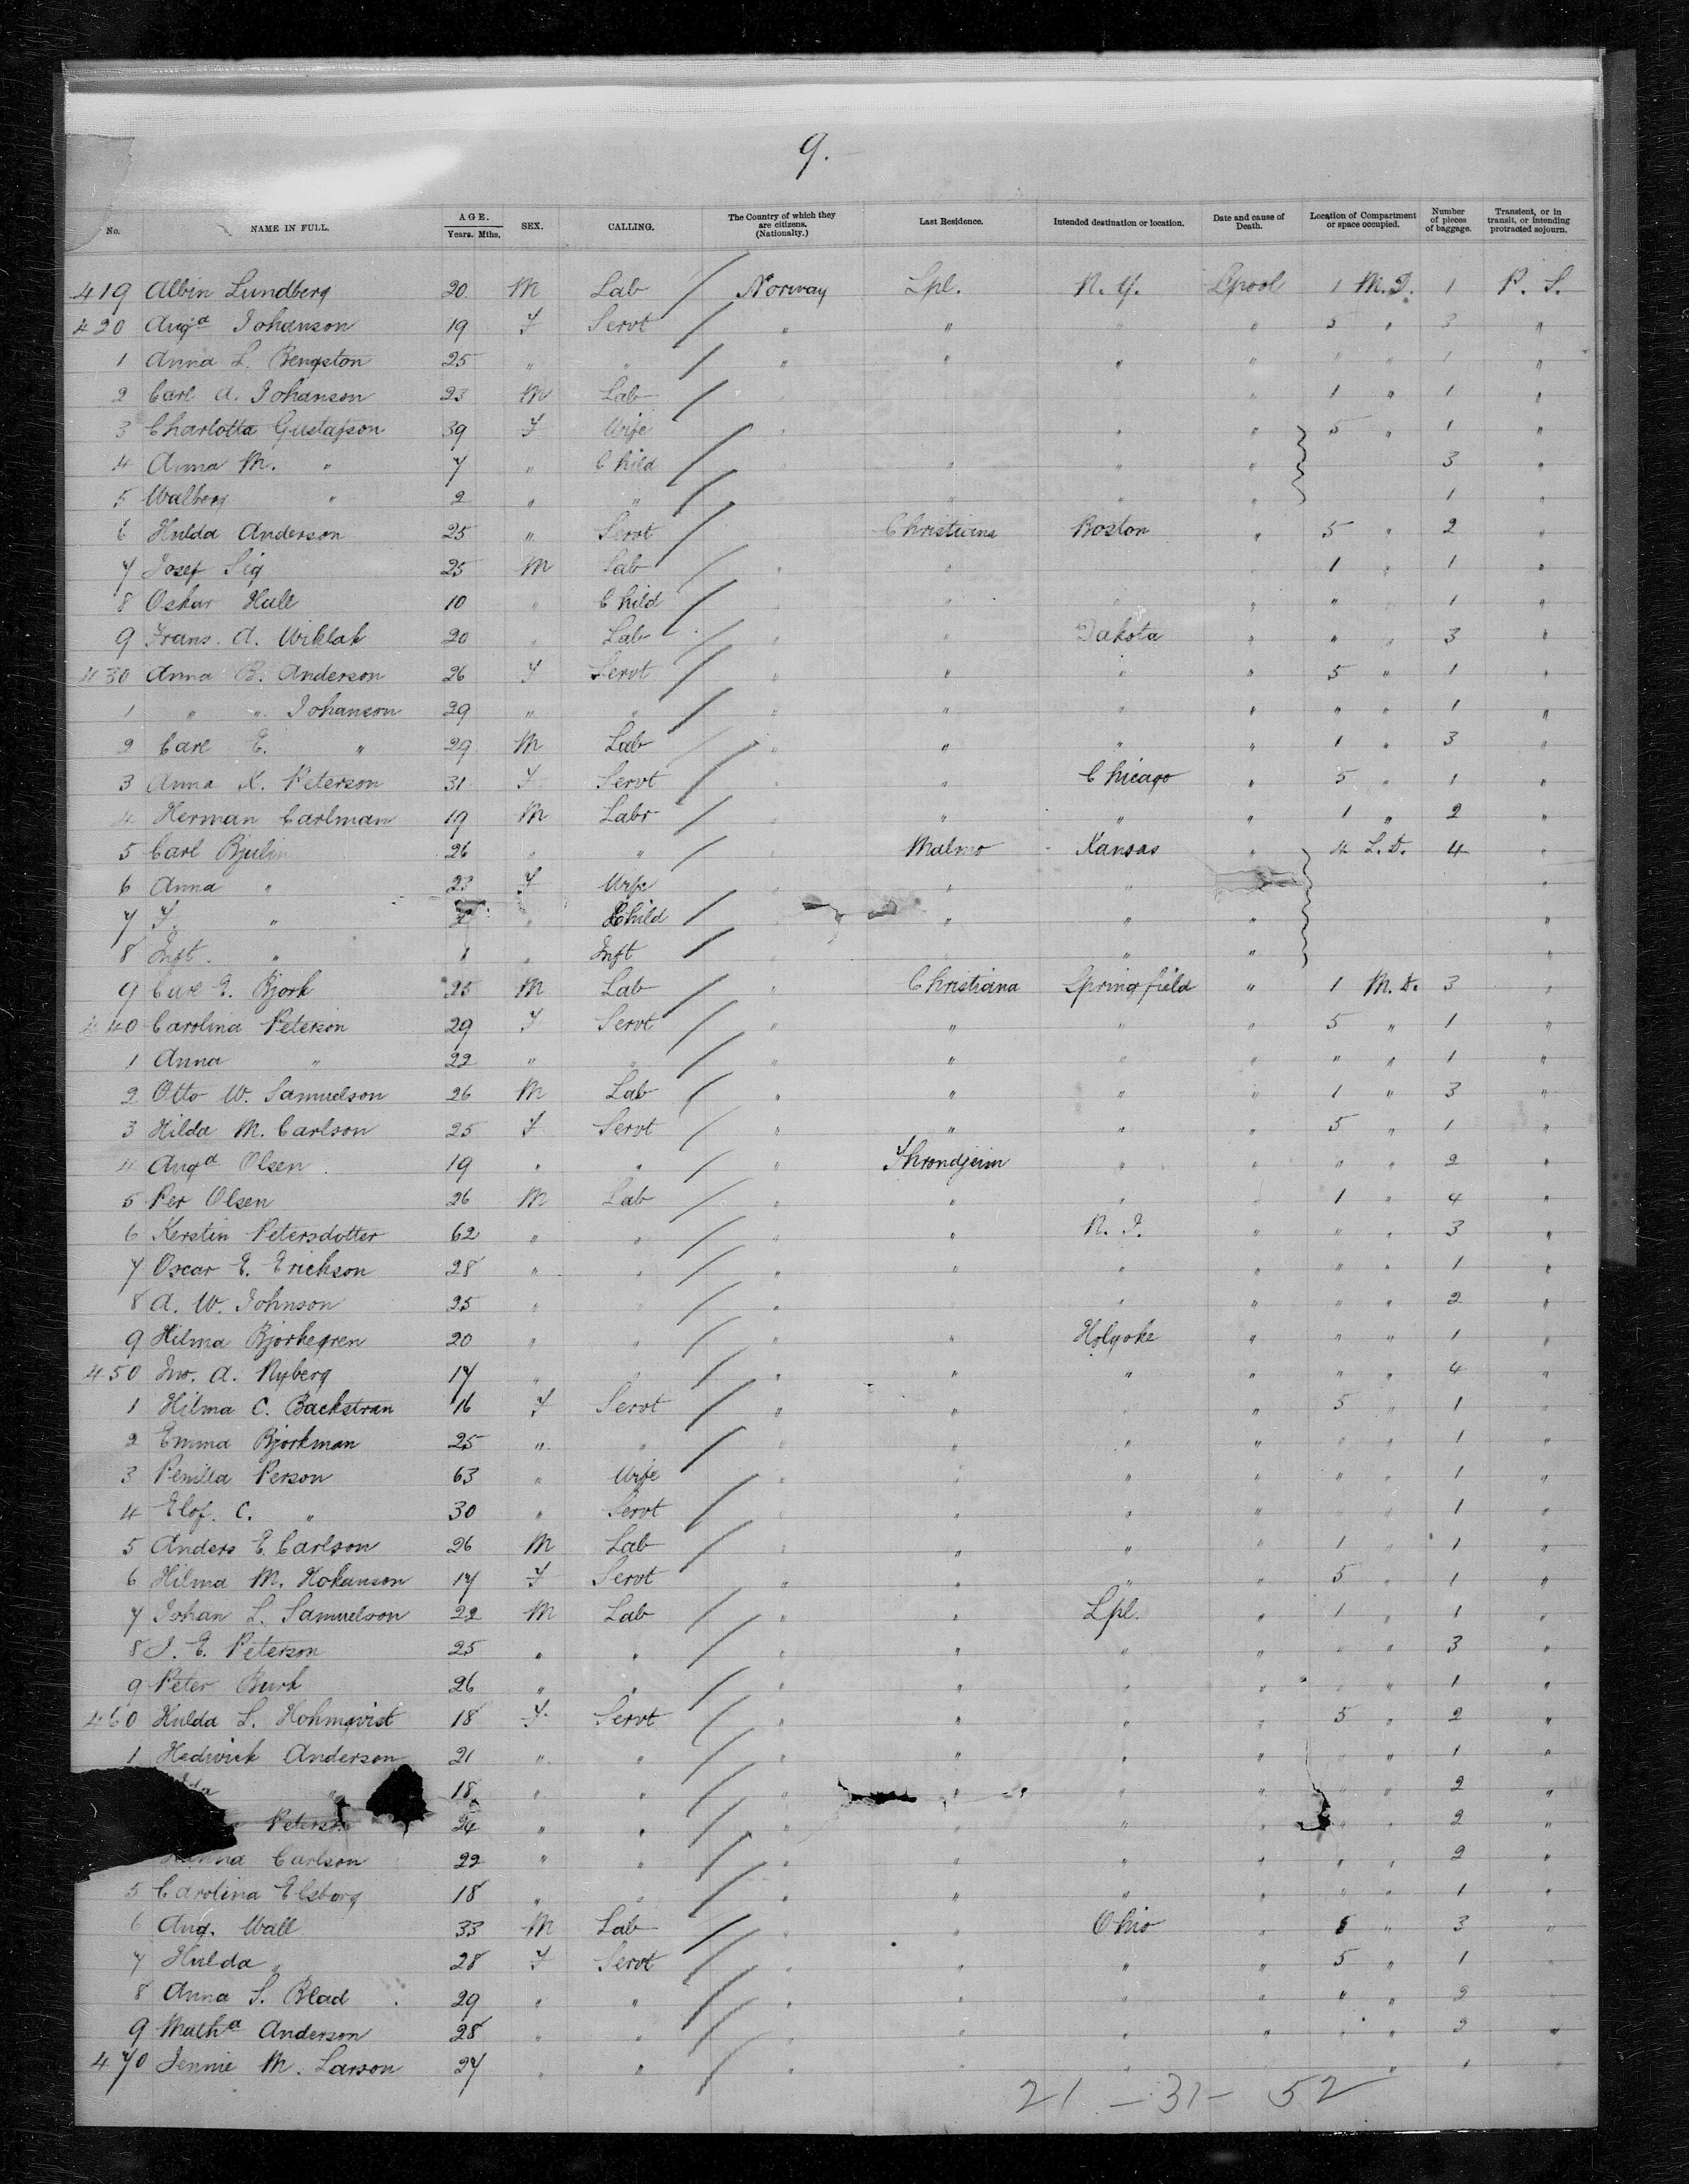 9.
No. NAME IN FULL. AGE. Years. Mths. SEX. CALLING. The Country of which they are citizens. (Nationality.) Last Residence. Intended destination or location. Date and cause of Death. Location of Compartment or space occupied. Number of pieces of baggage. Transient, or in transit, or intending protracted sojourn.
419 Albin Lundberg 20 M Lab / Norway Lpl. N.Y. Lpool 1 M.D. 1 P. S.
420 Augª Johanson 19 F Servt / " " " " 5 " 3 "
1 Anna L. Bengston 25 " " / " " " " " " 1 "
2 Carl A. Johanson 23 M Lab / " 1 " 1 "
3 Charlotta Gustafson 39 F Wife / " " " 5 " 1 "
4 Anna M. " 7 " Child / " " " " 3 "
5 Walberg " 2 " " / " " " " 1 "
6 Hulda Anderson 25 " Servt / Christiana Boston " 5 " 2 "
7 Josef Sig 25 M Lab / " " 1 " 1 "
8 Oskar Hall 10 " Child / " " " " " 1 "
9 Frans. A. Wiklat 20 " Lab / " " Dakota " " " 3 "
430 Anna B. Anderson 26 F Servt / " " " " 5 " 1 "
1 " " Johanson 29 " " / " " " " " " 1 "
2 Carl E. " 29 M Lab / " " " " 1 " 3 "
3 Anna K. Peterson 31 F Servt / " " Chicago " 5 " 1 "
4 Herman Carlman 19 M Labr / " " " " 1 " 2 "
5 Carl Bjulin 26 " " / " Malmo Kansas " 4 L.D. 4 "
6 Anna " 23 F Wife / " " " "
7 F. " " Child / " " " "
8 Inft. " 1 " Inft / " " " "
9 Carl E. Bjork 25 M Lab / " Christiana Springfield " 1 M.D. 3 "
440 Carolina Peterson 29 F Servt / " " " " 5 " 1 "
1 Anna " 22 " " / " " " " " " 1 "
2 Otto W. Samuelson 26 M Lab / " " " " 1 " 3 "
3 Hilda M. Carlson 25 F Servt / " " " " 5 " 1 "
4 Augª Olsen 19 " " / " Throndjeim " " " " 2 "
5 Per Olsen 26 M Lab / " " " " 1 " 4 "
6 Kerstin Petersdotter 62 " " / " " " " " 3 "
7 Oscar E. Erickson 28 " " / " " " " " " 1 "
8 A. W. Johnson 25 " " / " " " " " 2 "
9 Hilma Bjorkegren 20 " " / " " Holyoke " " " 1 "
450 Jno. A. Nyberg 17 " " / " " " " " " 4 "
1 Hilma C. Backstran 16 F Servt / " " " " 5 " 1 "
2 Emma Bjorkman 25 " " / " " " " " " 1 "
3 Penilla Person 63 " Wife / " " " " " " 1 "
4 Elof. C. " 30 " Servt / " " " " " 1 "
5 Anders E. Carlson 26 M Lab / " " " " 1 " 1 "
6 Hilma M. Hokanson 17 F Servt / " " " " 5 " 1 "
7 Johan L. Samuelson 22 M Lab / " " Lpl. " 1 " 1 "
8 J. E. Peterson 25 " " / " " " " " " 3 "
9 Peter Burk 26 " " / " " " " " " 1 "
460 Hulda L. Hohmqvist 18 F Servt / " " " " 5 " 2 "
1 Hedwick Anderson 21 " " / " " " " " " 1 "
" 18 " " / " " " " " " 2 "
Peterson 24 " " / " " " " " 2 "
Carlson 22 " " / " " " " " " 2 "
5 Carolina Elsborg 18 " " / " " " " " " 1 "
6 Aug. Wall 33 M Lab / " " Ohio " " 3 "
7 Hulda " 28 F Servt / " " " " 5 " 1 "
8 Anna S. Blad 29 " " / " " " " " " 2
9 Mathª Anderson 28 " " / " " " " " " 2 "
470 Jennie M. Larson 27 " " / " " " " 1 "
21 - 31 - 52